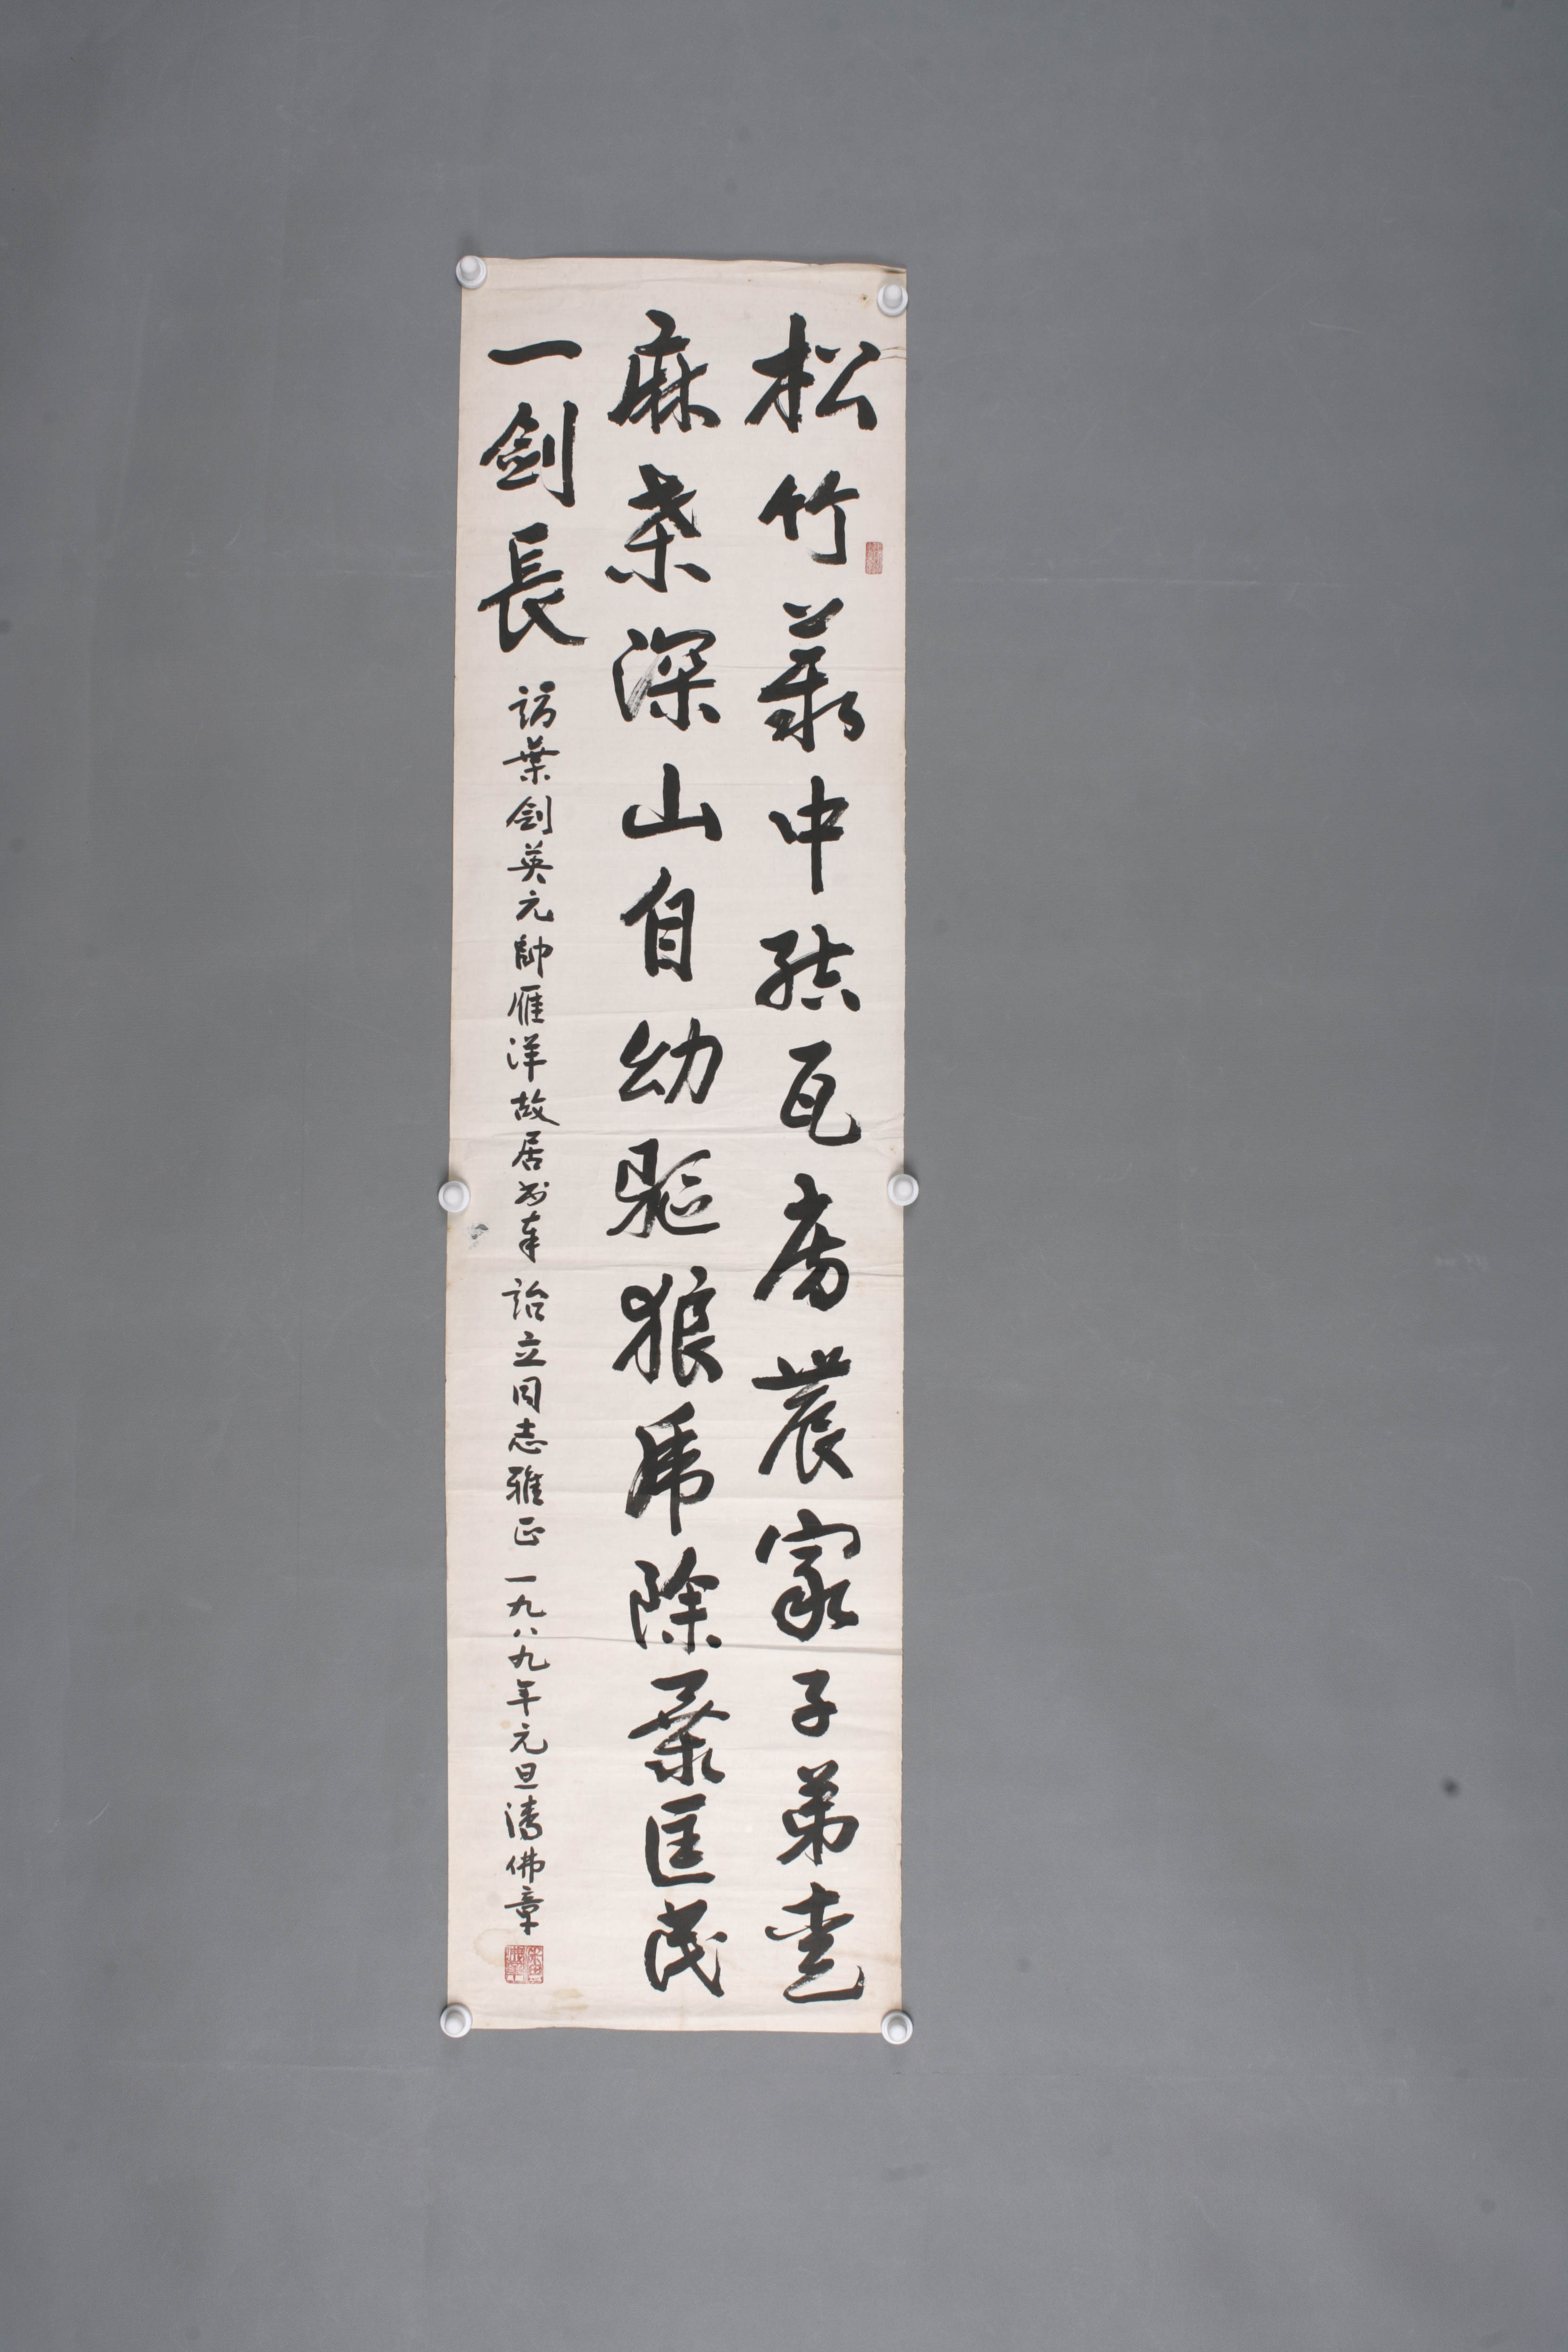 松竹叢中結瓦房農家子弟愛
麻桑深山自幼驅狼虎除暴匡民
一劍長
訪葉劍英元帥雁洋故居 奉 詒立同志雅正 一九八九年元旦潘佛章